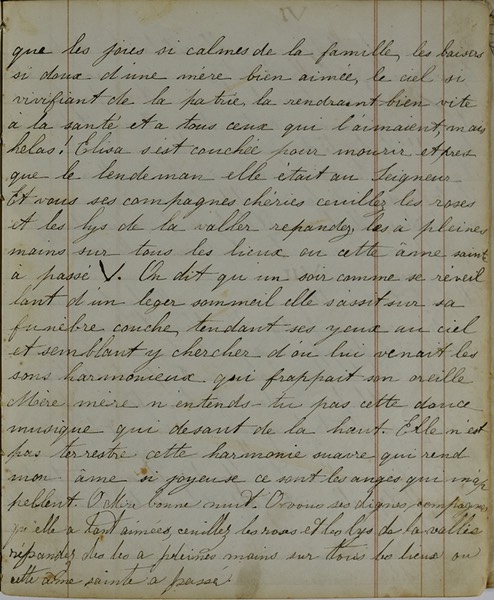 IV
que les joies si calmes de la famille, les baisers
si doux d'une mère bien aimée, le ciel si
vivifiant de la patrie, la rendraint bien vite
à la santé et a tous ceux qui l'aimaient, mais
helas! Elisa s'est couchée pour mourir et pres
que le lendeman elle était au Seigneur
Et vous ses compagnes chéries ceuillez les roses
et les lys de la valler repandez, les à pleines
mains sur tous les lieux ou cette âme sainte
à passé V. On dit qu un soir comme se réveil
lant d'un leger sommeil elle s'assit sur sa
funèbre couche, tendant ses yeux au ciel
et semblant y chercher d'où lui venait les
sons harmonieux qui frappait son oreille
Mère mère n'entends-tu pas cette douce
musique qui desant de la haut. Elle n'est
pas terrestre cette harmonie suave qui rend
mon âme si joyeuse ce sont les anges qui m'ap
pellent. O Mère bonne nuit. O vous ses dignes compagnes
qu'elle a tant aimées, ceuillez les roses et les lys de la vallée
répandez les a pleines mains sur tous les lieux ou
cette âme sainte a passé